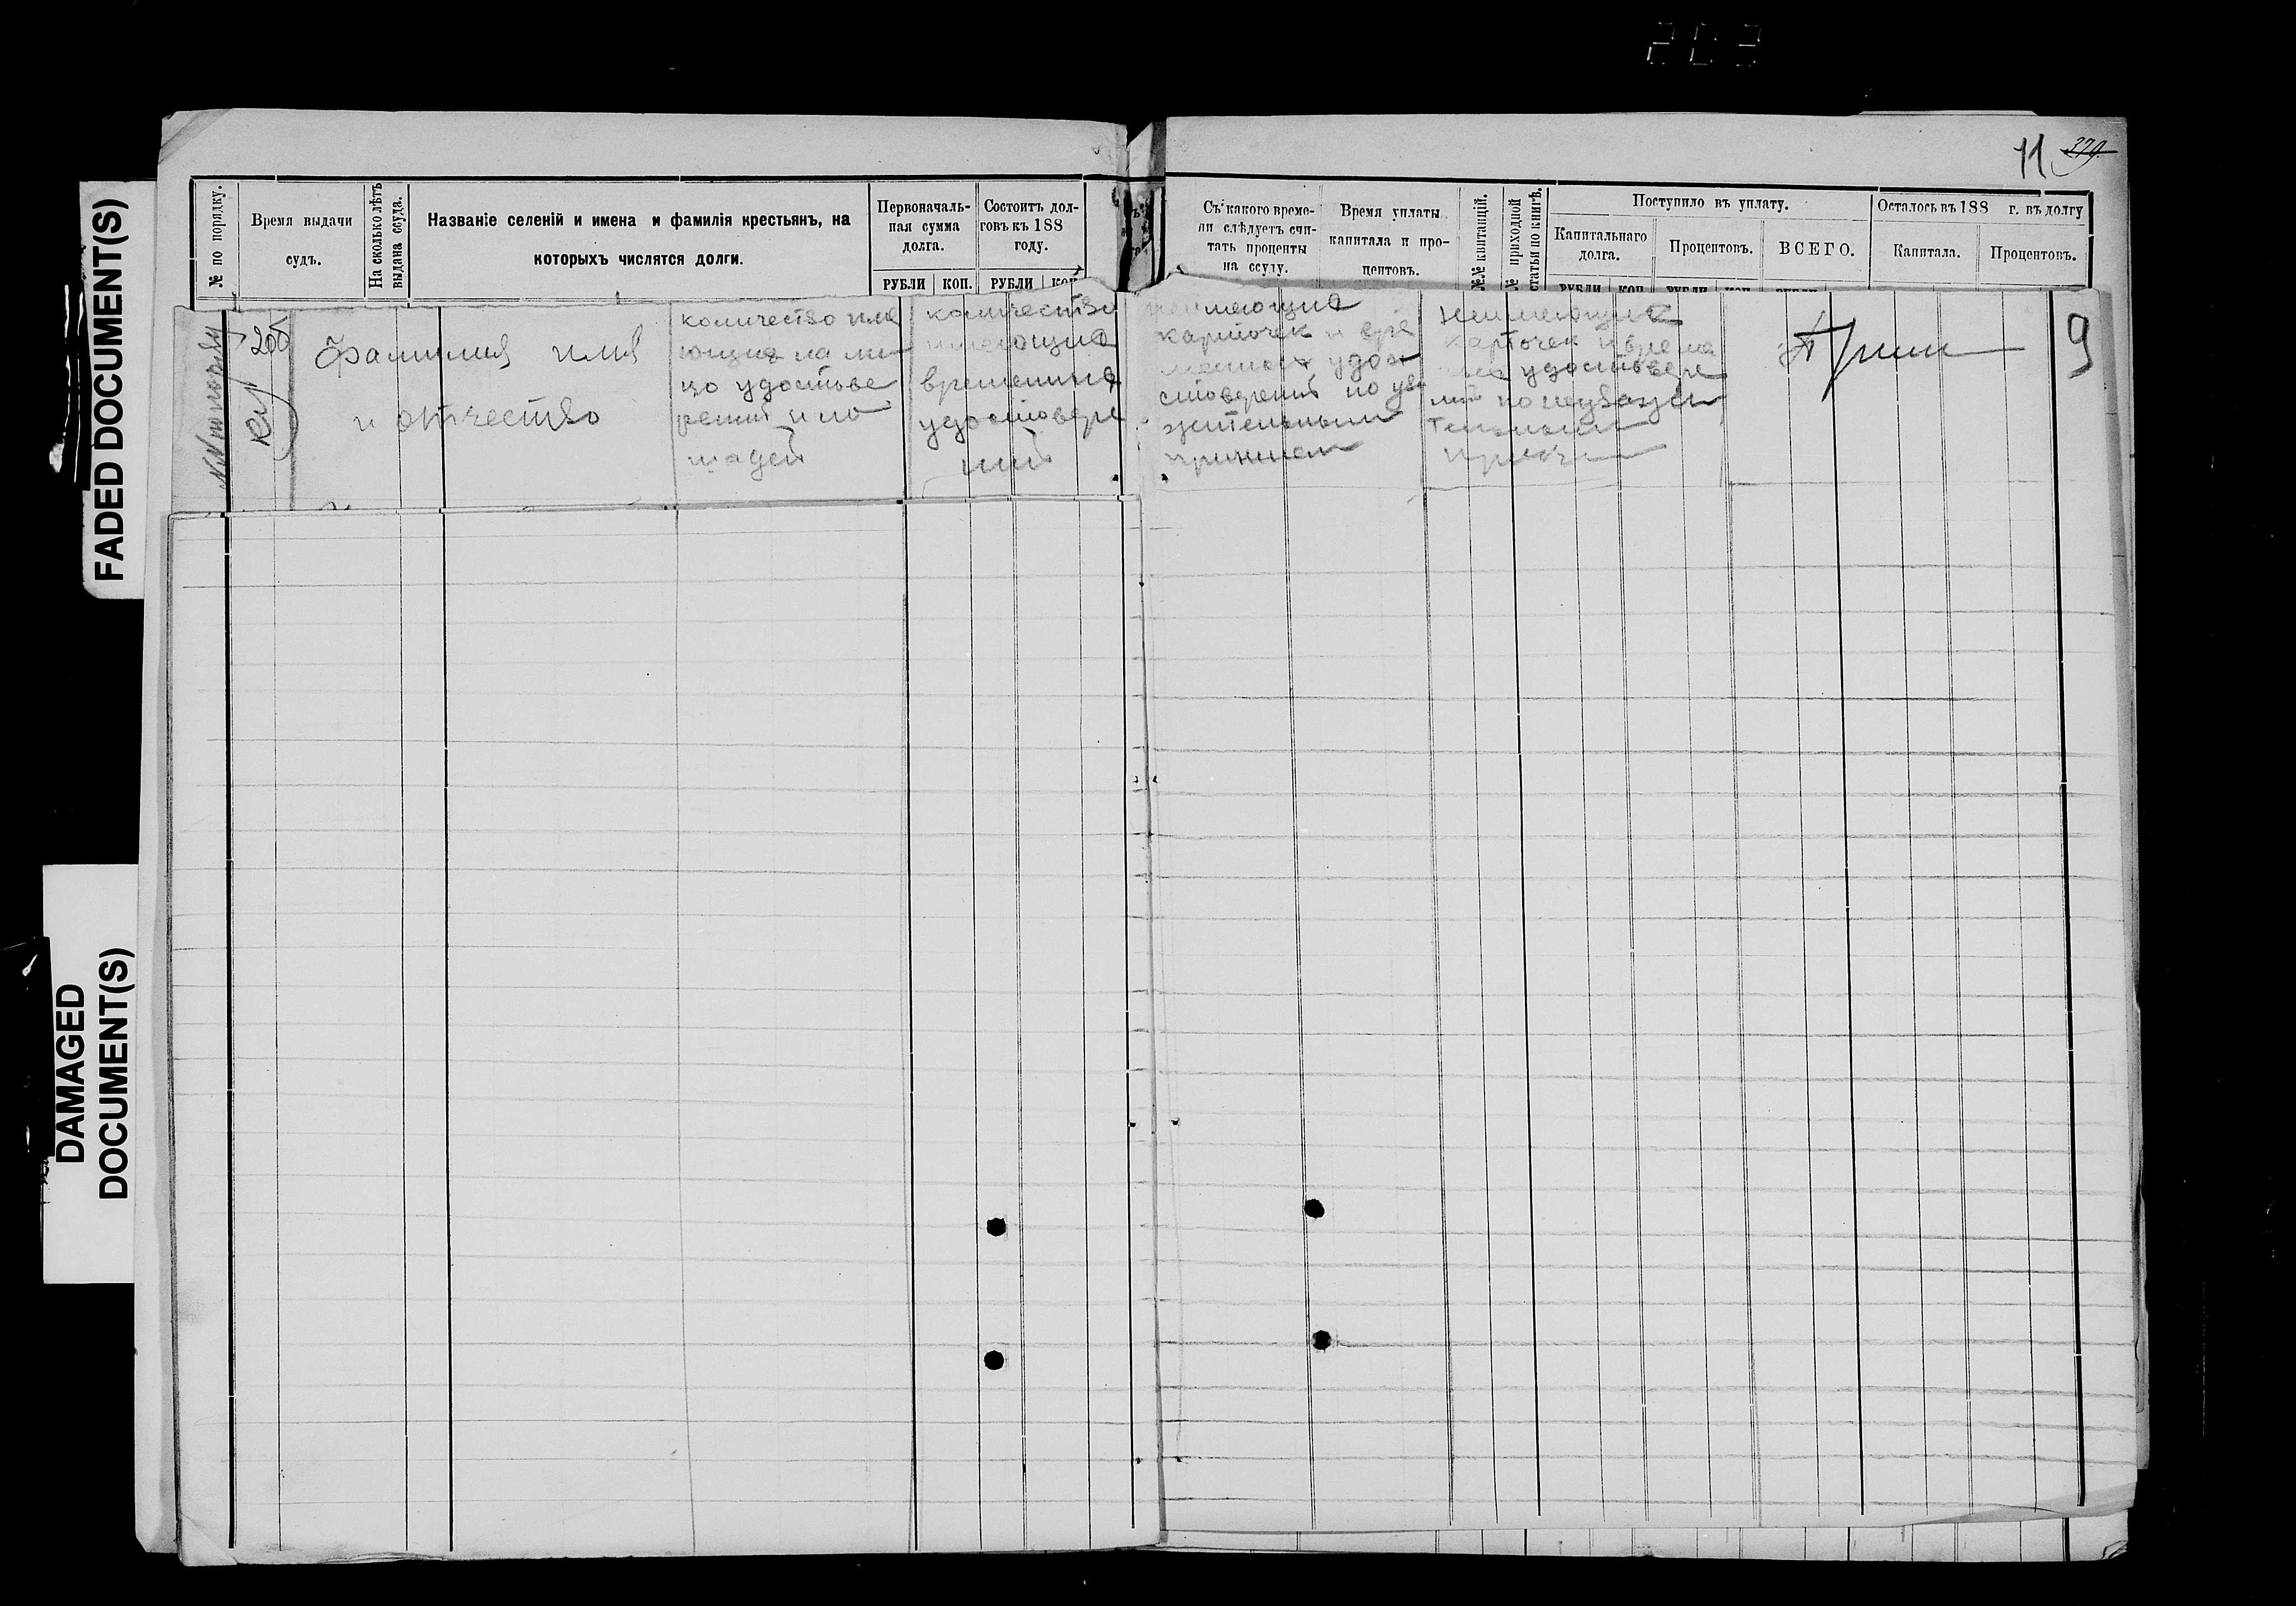 FADED DOCUMENT(S)
DAMAGED
DOCUMENT(S)
11 379
№ по порядку.
Время выдачи
судъ.
На сколько лѣтъ
выдана ссуда.
Названіе селеній и имена и фамилія крестьянъ, на
которыхъ числятся долги.
Первоначаль-
ная сумма
долга.
РУБЛИ КОП.
Состоитъ дол-
говъ къ 188
году.
РУБЛИ КОП
Съ какого време-
ни слѣдуетъ счи-
тать проценты
на ссуду.
Время уплаты
капитала и про-
центовъ.
№№ квитанцій.
№ приходной
статьи по книгѣ.
Поступило въ уплату.
Капитальнаго
долга.
Процентовъ.
ВСЕГО.
РУБЛИ КОП РУБЛИ КОП РУБЛИ
Осталось въ 188 г. въ долгу
Капитала.
Процентовъ.
№№ по порядку
Фамилия имя
и отчество
количество име
ющия на ли
цо удостове
рений и ло
шадей
количество
имеющие
временные
удостовере
ний
неимеющие
карточек и вре
менных удо
стоверений по ува
жительным
причинам
Неимеющих
карточек и време
удостовере
ний по неуважи
тельным
Прим
9